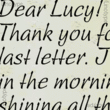 Dear Lucy!
Thank you fo
last letter. J
in the mornin
shining all t